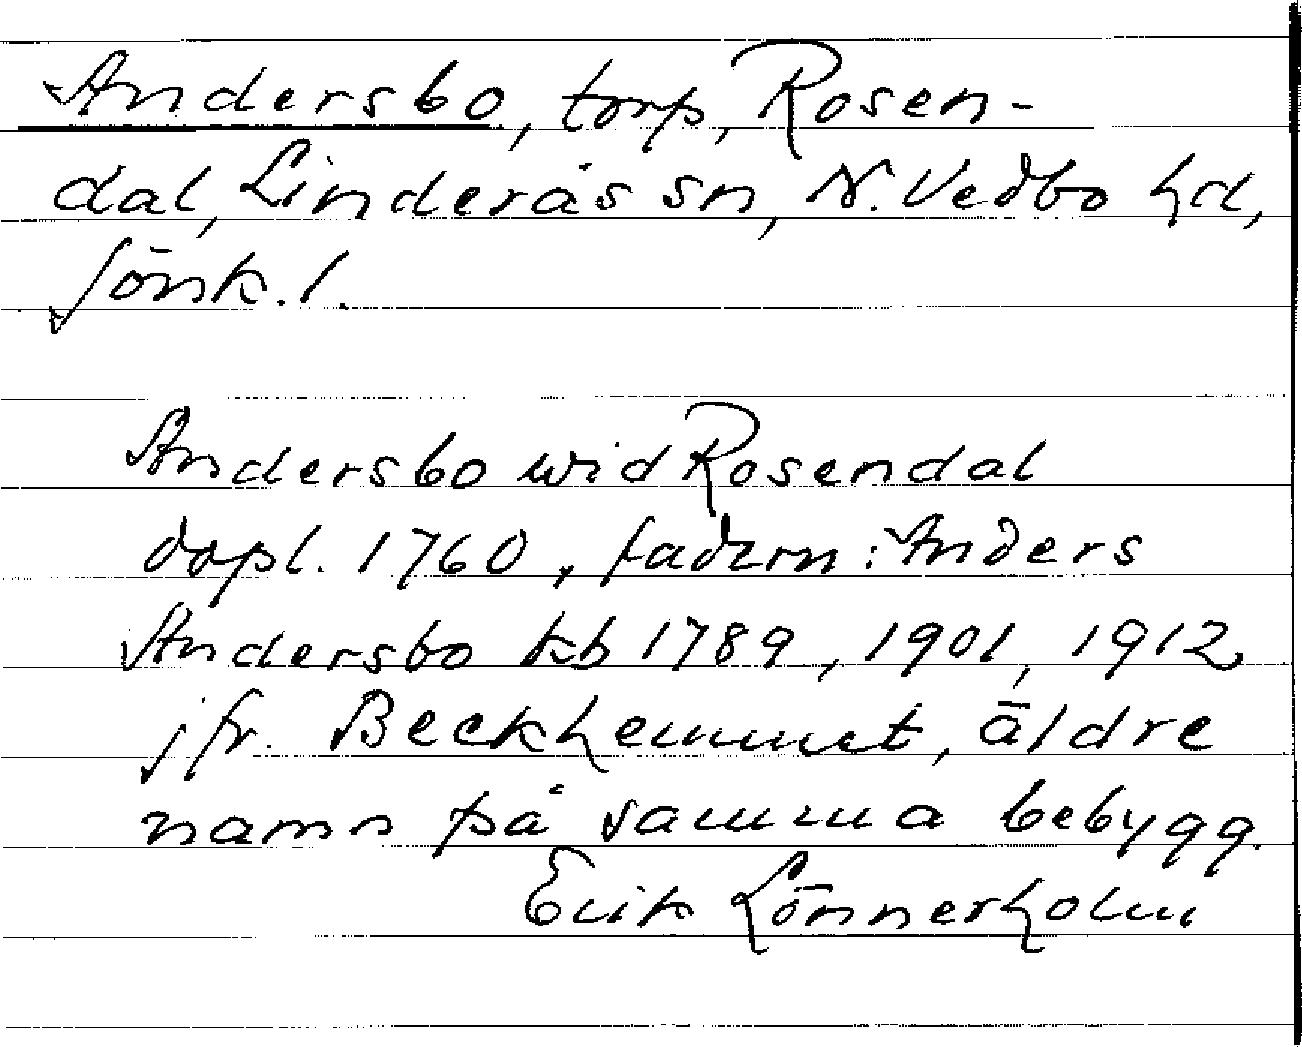 Andersbo, torp, Rosen-
dal, Linderås sn, N. Vedbo hd,
Jönk. l.
Andersbo wid Rosendal
dopl. 1760, fadern: Anders
Andersbo kb 1789, 1901, 1912
jfr. Beckhemmet, äldre
namn på samma bebygg.
Erik Lönnerholm